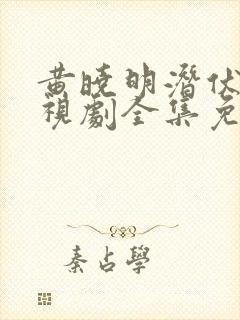 黄晓明潜伏
視劇全集免
秦占學